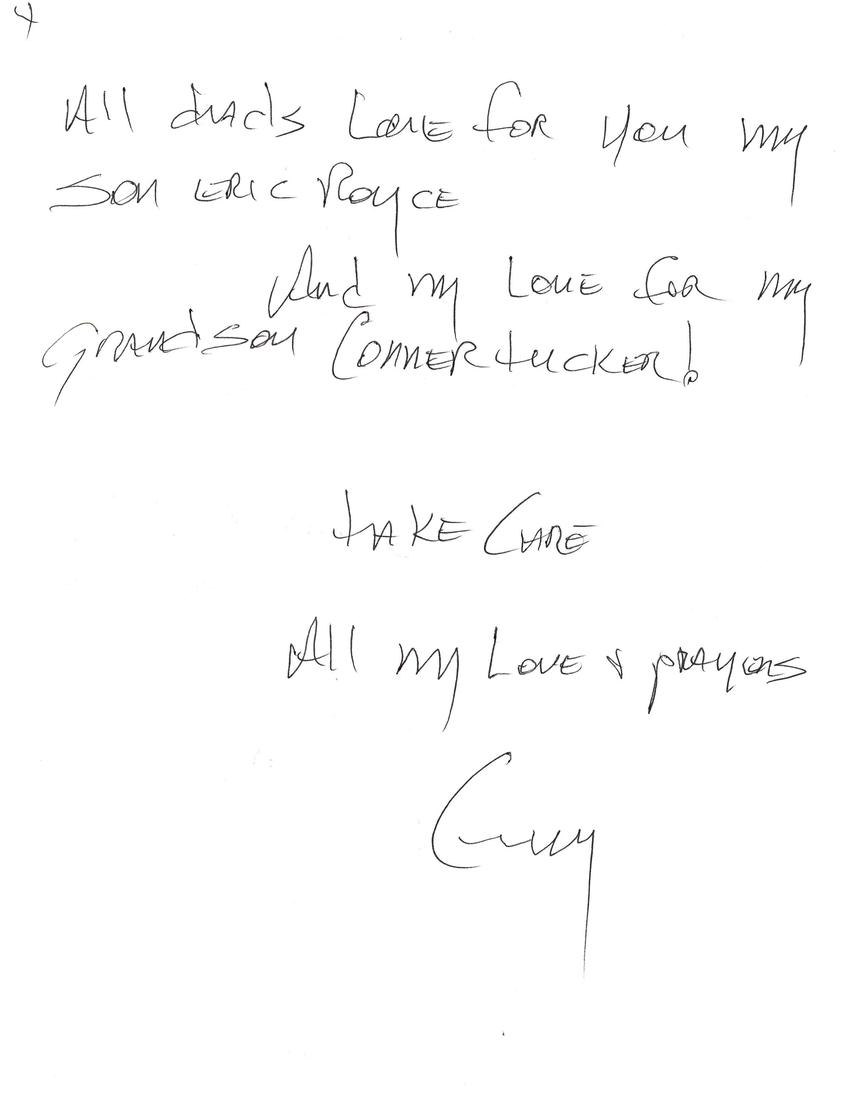 4
All dad's Love for you my
Son ERIC Royce
And my Love for my
Grandson Conner tucker!
take Care
All my Love & prayers